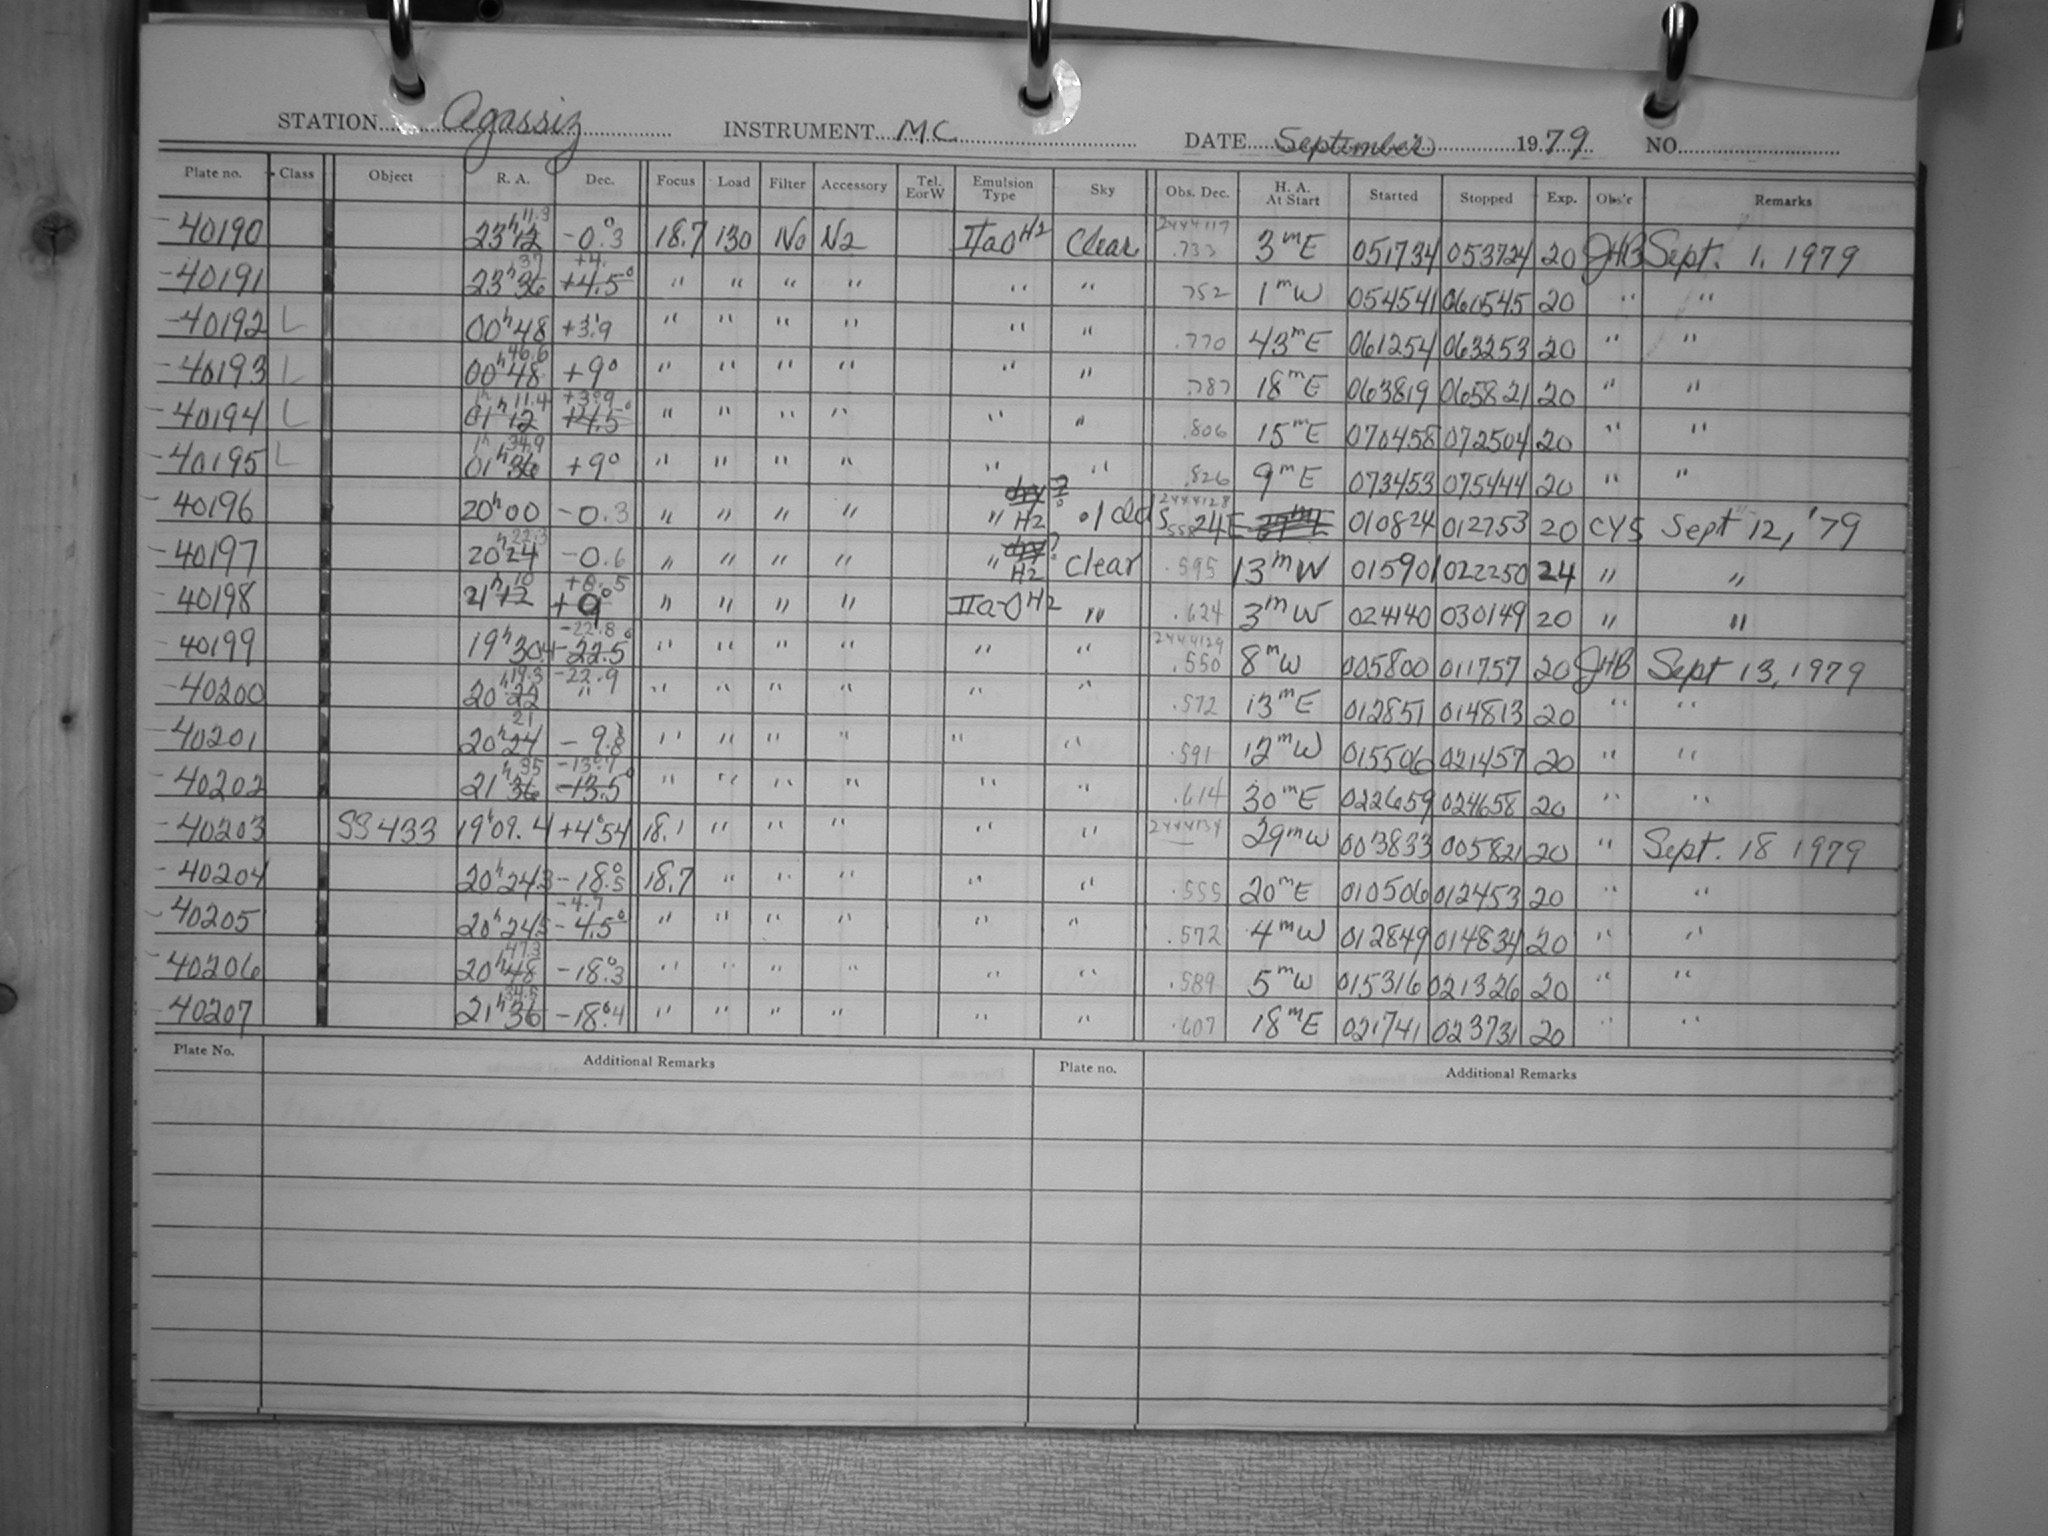 STATION Agassiz INSTRUMENT MC DATE September 1979 NO.
Plate no. Class Object R. A. Dec. Focus Load Filter Accessory Tel. E or W Emulsion Type Sky Obs. Dec. H. A. At Start Started Stopped Exp. Obs'r Remarks
40190 23h 12 11.3 -0°.3 18.7 130 No N2 IIaO H2 Clear 2444117 .733 3mE 051734 053724 20 JHB Sept. 1, 1979
40191 23h 36 37 +4.5° +4. " " " " " " .752 1mW 054541 061545 20 " "
40192 L 00h 48 +3.9 " " " " " " .770 43mE 061254 063253 20 " "
40193 L 00h 48 46.6 +9° " " " " " " .787 18mE 063819 065821 20 " "
40194 L 01h 12 1h 11.4 +4.5° +3.9 " " " " " " .806 15mE 070458 072504 20 " "
40195 L 01h 36 1h 34.9 +9° " " " " " " .826 9mE 073453 075444 20 " "
40196 20h 00 -0.3 " " " " " dry? H2 2444128 .558 24E 010824 012753 20 CYS Sept 12, '79
40197 20h 24 22.3 -0.6 " " " " " dry? H2 Clear .595 13mW 015901 022250 24 " "
40198 21h 12 10 +9° +8.5 " " " " IIa-O H2 " .624 3mW 024140 030149 20 " "
40199 19h 30.4 -22.5° -22.8 " " " " " " 2444129 .550 8mW 005800 011757 20 JHB Sept 13, 1979
40200 20h 22 19.3 " -22.9 " " " " " " .572 13mE 012851 014813 20 " "
40201 20h 24 21 -9.8 " " " " " " .591 12mW 015506 021457 20 " "
40202 21h 36 35 -13.5° -13.7 " " " " " " .614 30mE 022659 024658 20 " "
40203 SS 433 19h 09.4 +4°54 18.1 " " " " " 2444134 29mW 003833 005821 20 " Sept. 18 1979
40204 20h 24.3 -18°.5 18.7 " " " " " .555 20mE 010506 012453 20 " "
40205 20h 24.5 -4.5° -4.7 " " " " " " .572 4mW 012849 014834 20 " "
40206 20h 48 47.3 -18°.3 " " " " " " .589 5mW 015316 021326 20 " "
40207 21h 36 34.5 -18°.4 " " " " " " .607 18mE 021741 023731 20 " "
Plate No. Additional Remarks Plate no. Additional Remarks